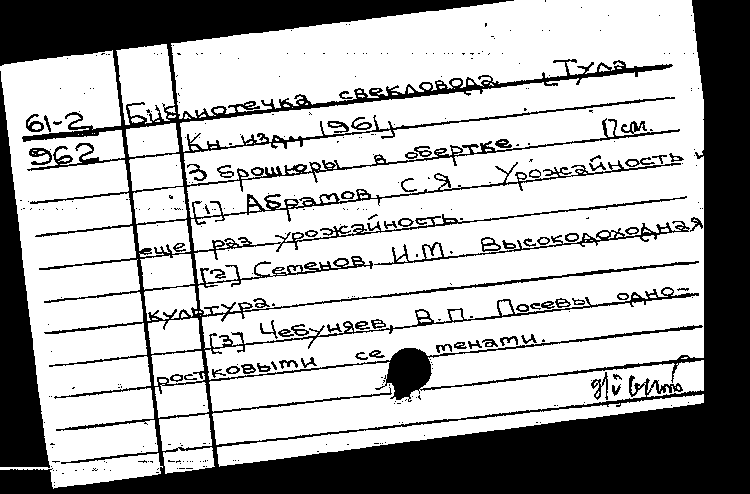 61-2
962
Библиотечка свекловода [Тула,
Кн. изд., 1961].
3 брошюры в обертке.
[1] Абрамов, С.Я. Урожайность и
еще раз урожайность.
[2] Семенов, И.М. Высокодоходная
культура.
[3] Чебуняев, В.П. Посевы одно-
ростковыми се менами.